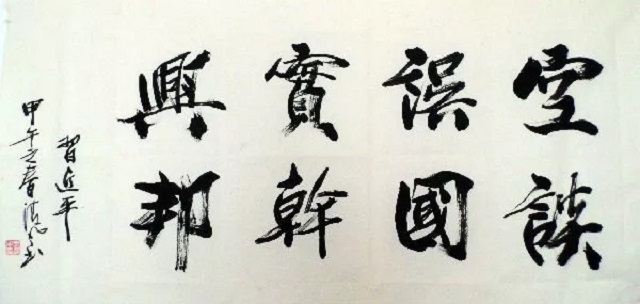 空談
誤國
實幹
興邦
習近平
甲午之春